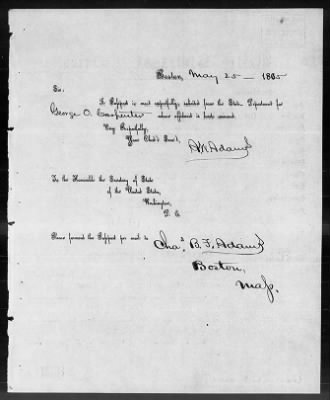 Boston, May 25 — 1865
Sir:
A Passport is most respectfully solicited from the State Department for
George O. Carpenter whose affidavit is hereto annexed.
Very Respectfully,
Your Obed't Serv't,
A.W. Adams
To the Honorable the Secretary of State
of the United States,
Washington,
D. C.
Please forward the Passport per mail to
Chas. B. F. Adams
Boston,
Mass.